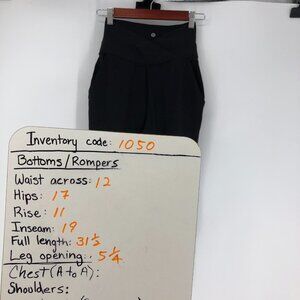 Inventory code: 1050
Bottoms/Rompers
Waist across: 12
Hips: 17
Rise: 11
Inseam: 19
Full length: 31 1/2
Leg opening: 5 1/4
Chest (A to A):
Shoulders: